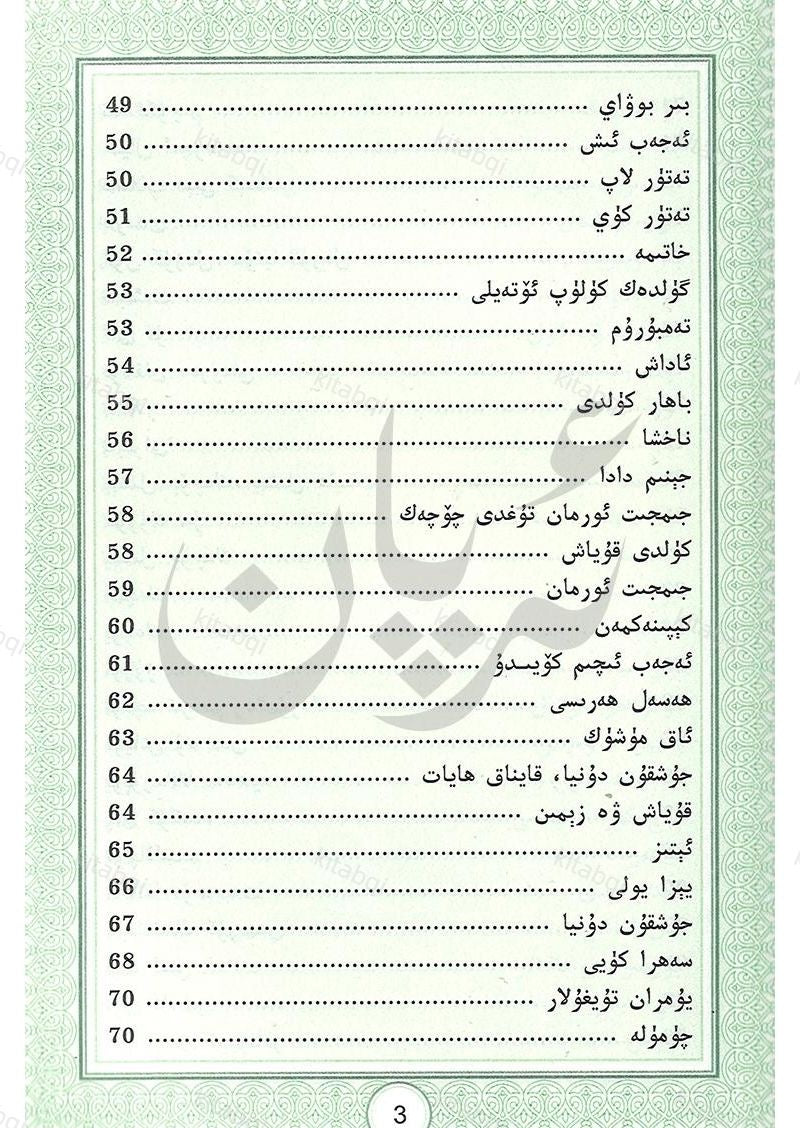 بىر بوۋاي ........ 49
ئەجەب ئىش ........ 50
تەتۈر لاپ ........ 50
تەتۈر كۈي ........ 51
خاتىمە ........ 52
گۈلدەك كۈلۈپ ئۆتەيلى ........ 53
تەمبۇرۇم ........ 53
ئاداش ........ 54
باھار كۈلدى ........ 55
ناخشا ........ 56
جېنىم دادا ........ 57
جىمجىت ئورمان تۇغدى چۆچەك ........ 58
كۈلدى قۇياش ........ 58
جىمجىت ئورمان ........ 59
كېپىنەكمەن ........ 60
ئەجەب ئىچىم كۆيىدۇ ........ 61
ھەسەل ھەرىسى ........ 62
ئاق مۈشۈك ........ 63
جۇشقۇن دۇنيا، قايناق ھايات ........ 64
قۇياش ۋە زېمىن ........ 64
ئېتىز ........ 65
يېزا يولى ........ 66
جۇشقۇن دۇنيا ........ 67
سەھرا كۈيى ........ 68
يۇمران تۇيغۇلار ........ 70
چۈمۈلە ........ 70
3
kitabqi